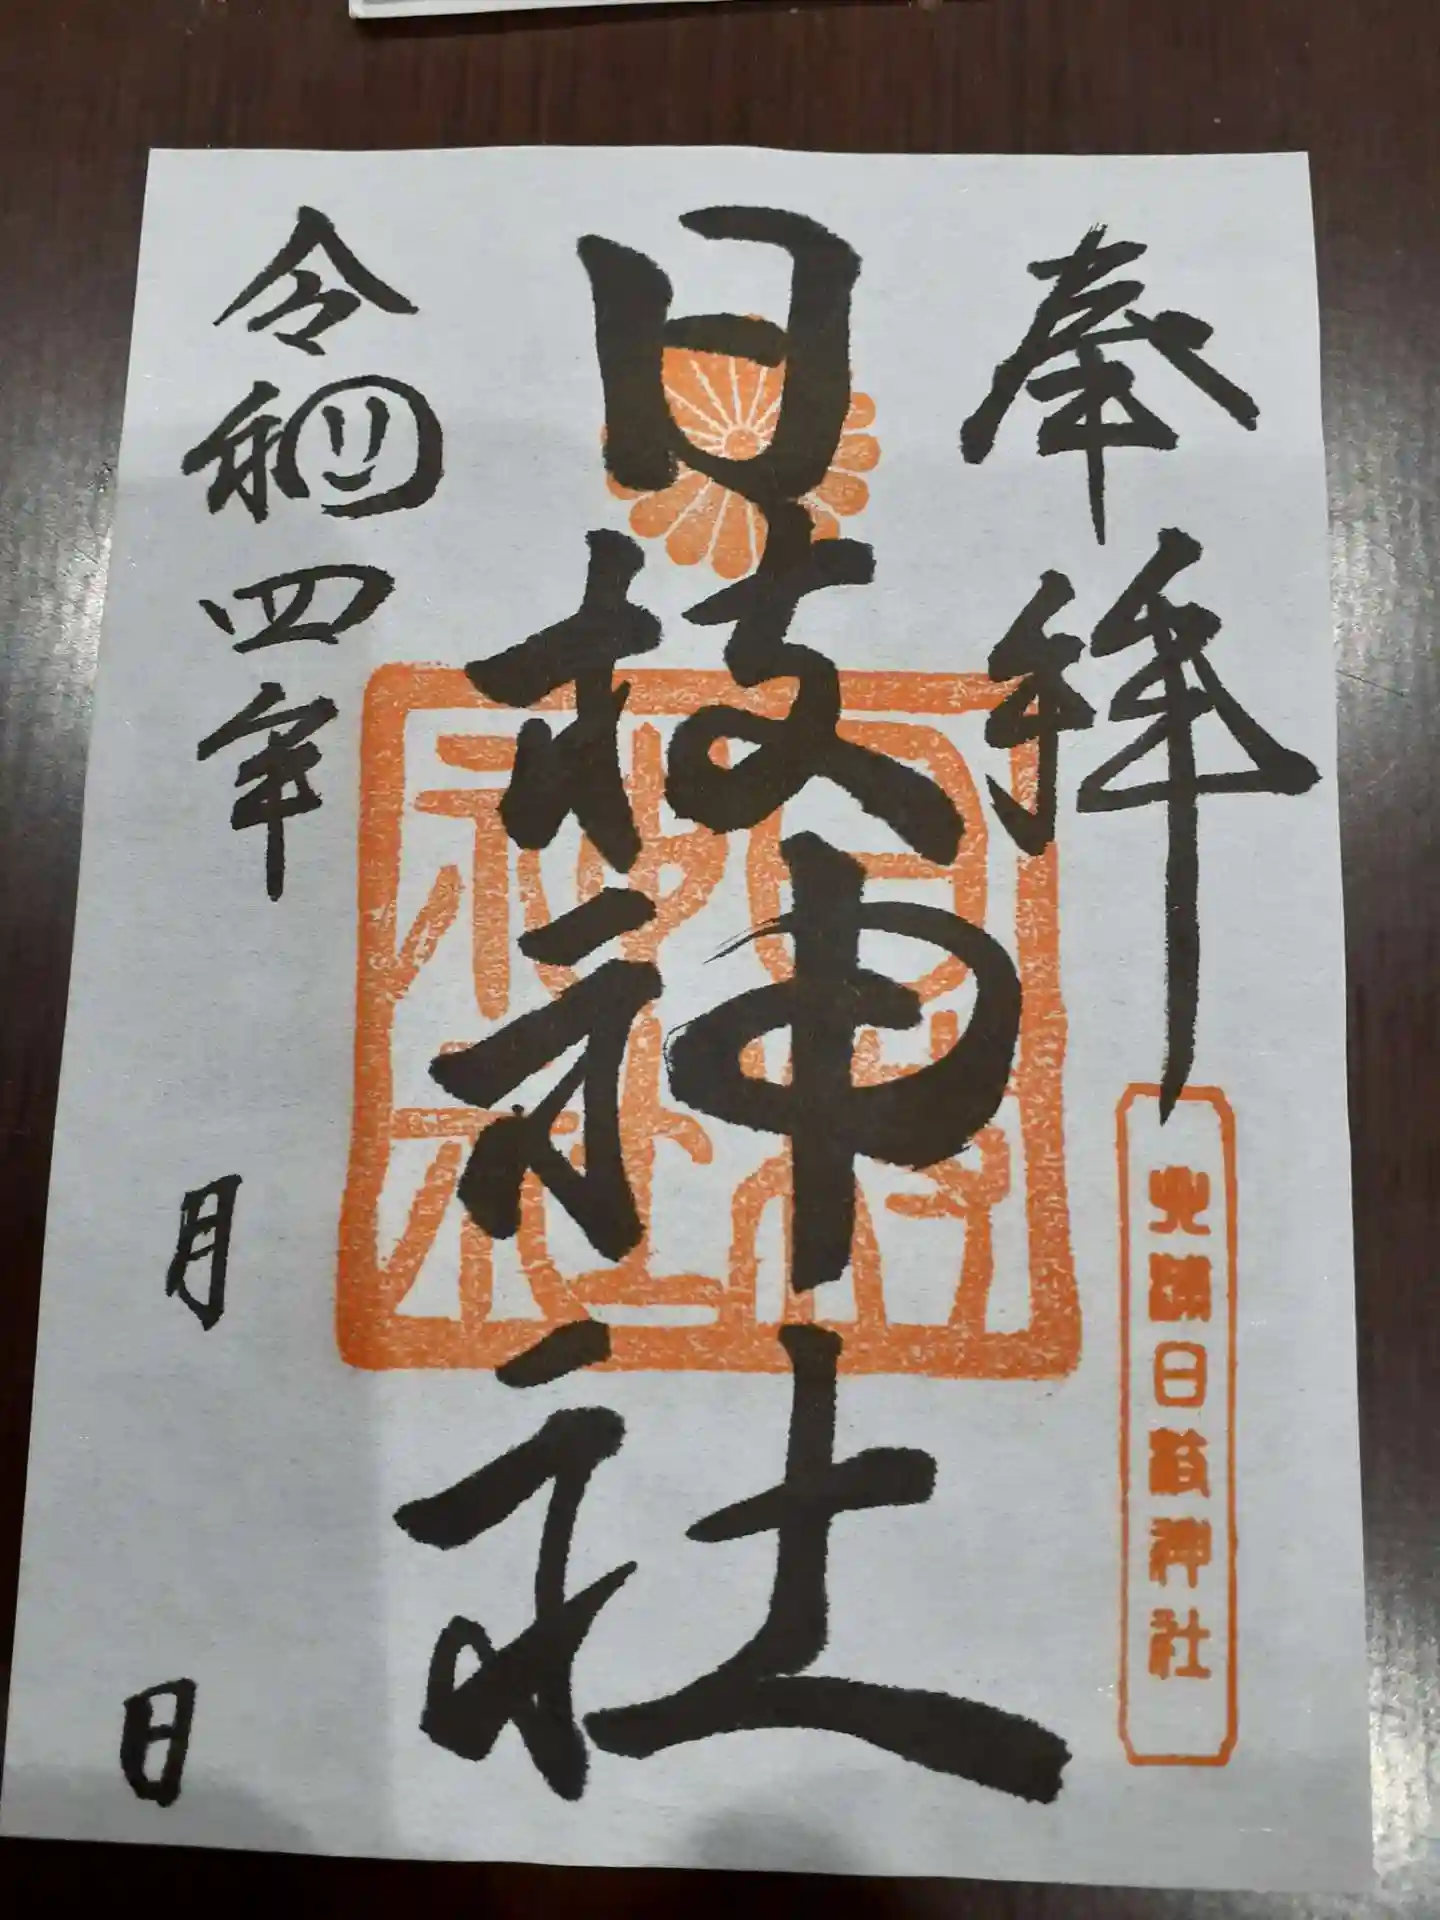 奉拝
日枝神社
日枝神社
日枝
神社
令和四年 月 日